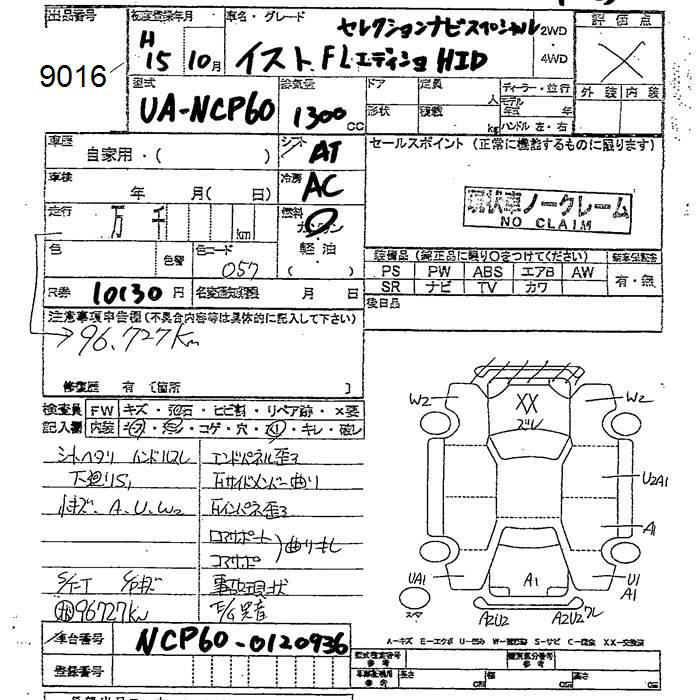 出品番号
9016
初度登録年月
H 15 10月
車名・グレード
セレクションナビスペシャル
イスト FL エディション HID
2WD
・
4WD
評価点
X
外装 内装
型式
UA-NCP60
排気量
1300 CC
ドア
形状
定員 人
積載 kg
ディーラー・並行
モデル
年式 年
ハンドル 左・右
車歴
自家用・( )
シフト
AT
セールスポイント (正常に機能するものに限ります)
車検
年 月( 日)
冷房
AC
走行
万 千 km
燃料
ガソリン
軽油
( )
現状車ノークレーム
NO CLAIM
色
色替
色コード
057
装備品 (純正品に限り○をつけてください)
PS PW ABS エアB AW
SR ナビ TV カワ
有・無
R券 10130 円
名変期限 月 日
後日品
注意事項申告欄(不具合内容等は具体的に記入して下さい)
→ 96.727km
修復歴 有 〔箇所 〕
検査員 FW キズ・飛石・ヒビ割・リペア跡・×要
記入欄 内装 コゲ・穴・キレ・破レ
シートヘタリ ハンドルスレ
エンドパネル歪ミ
下廻リS
右サイドメンバー曲り
小キズ、A.U.W2
右インパネ歪ミ
コアサポート
コアサポ
曲り有し
事故現状
96727km
車台番号
NCP60-0120936
登録番号
W2
XX
ズレ
W2
U2A1
A1
UA1
A1
U1
A1
A2U2
A2U2 ワレ
A-キズ E-エクボ U-凹み W-補修跡 S-サビ C-腐食 XX-交換済
型式指定番号
参考
類別区分番号
参考
長さ cm
幅 cm
高さ cm